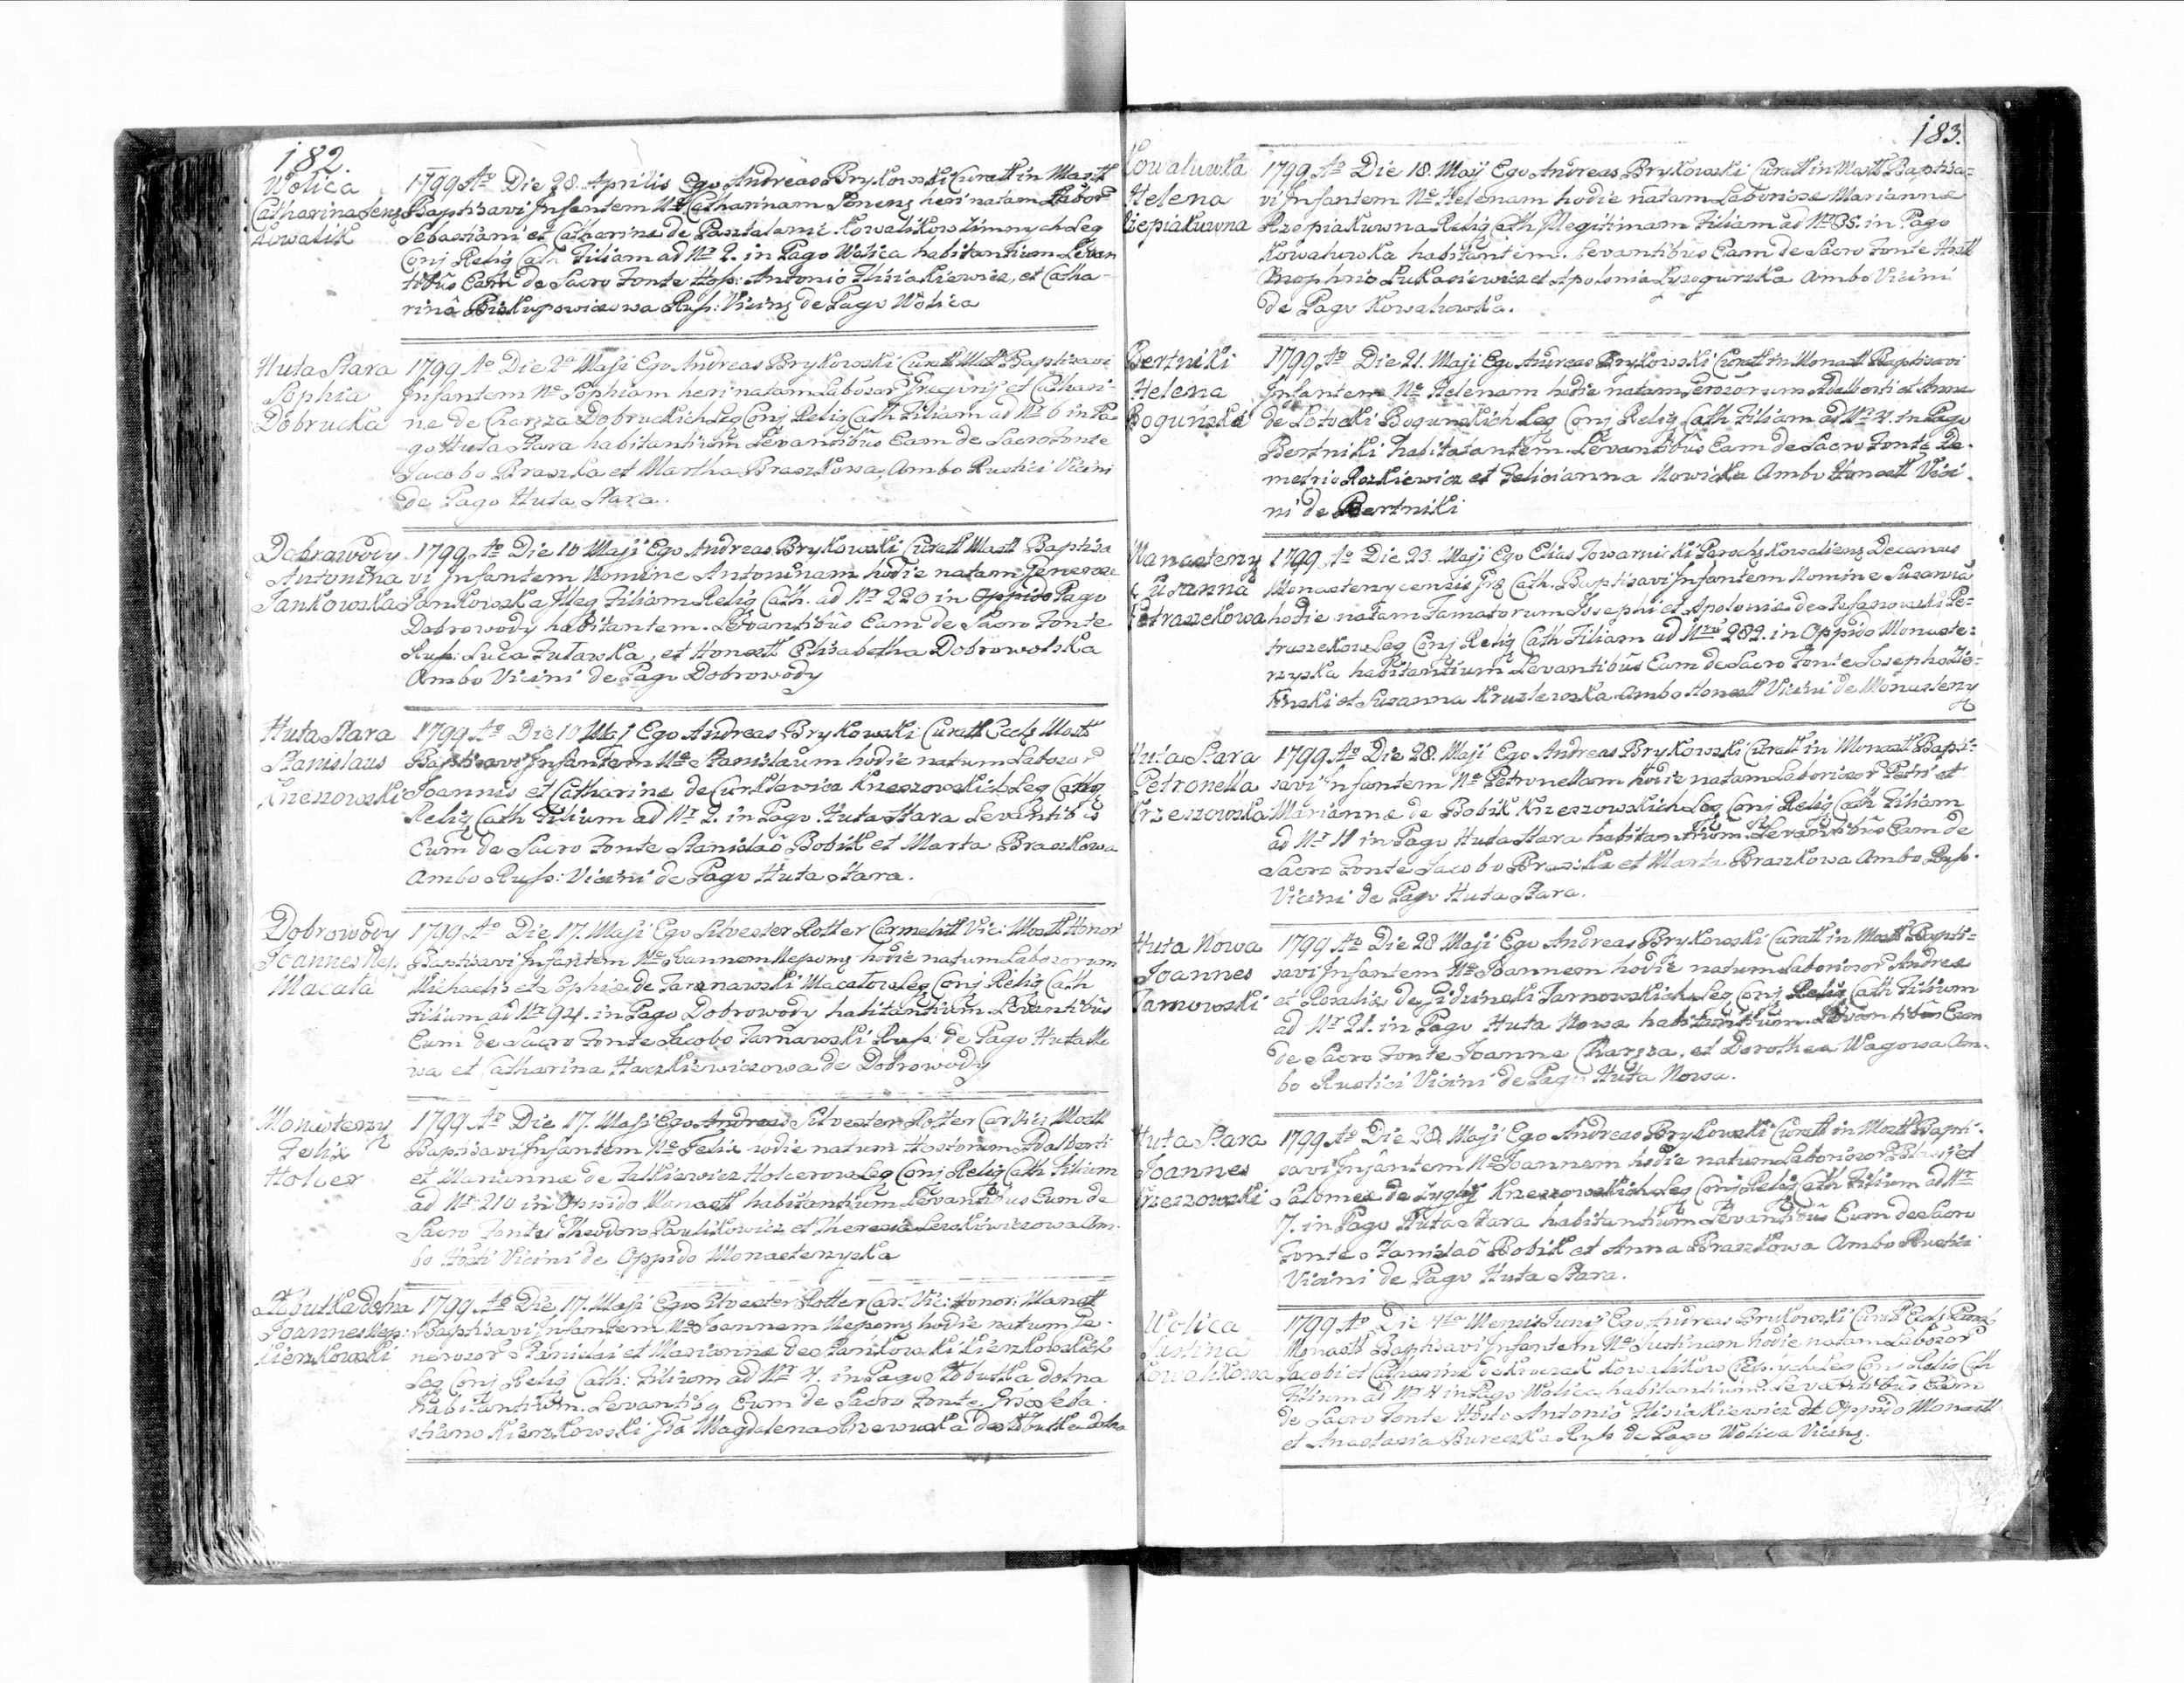 182.
Wolica
Catharina Senens
Kowalik
1799 Aō Die 28. Aprilis Ego Andreas Brykowski Curatt in Mastt
Baptisavi Infantem Nē Catharinam Senens heri natam Labor
Sebastiani et Catharinæ de Kowalikow Zimnych Leg
Conj Relig Cath Filiam ad Nr 2. in Pago Wolica habitantium Levan
tibūs Eam de Sacro Fonte Hon: Antonio Flisiakiewicz, et Catha-
rinâ Biskupowiczowa Rus: Vicins de Pago Wolica
Huta Stara
Sophia
Dobrucka
1799 Aō Die 2a Maji Ego Andreas Brykowski Curatt Mstt Baptisavi
Infantem Nē Sophiam heri natam Labosor Gregorij et Cathari-
næ de Charęza Dobruckich Leg Conj Relig Cath Filiam ad Nr 6 in Pa
go Huta Stara habitantium Levantibūs Eam de Sacro Fonte
Jacobo Braszka et Martha Braszkowa, Ambo Rustici Vicini
de Pago Huta Stara.
Dobrowody
Antonina
Jankowska
1799 Aō Die 10 Maji Ego Andreas Brykowski Curatt Mastt Baptisa
vi Infantem Nomine Antoninam hodie natam Generosæ
Jankowska Illeg Filiam Relig Cath. ad Nr 220 in Oppido Pago
Dobrowody habitantem. Levantibus Eam de Sacro Fonte
Rus: Luca Pulawka, et Honestt Elisabetha Dobrowolska
Ambo Vicini de Pago Dobrowody
Huta Stara
Stanislaus
Krzeszowski
1799 Aō Die 10 Maj Ego Andreas Brykowski Curatt Eccls Mostt
Baptisavi Infantem Nē Stanislaum hodie natum Labosor
Joannis et Catharinæ de Curkławicz Krzeszowskich Leg
Relig Cath Filium ad Nr 2. in Pago Huta Stara Levantibūs
Eum de Sacro Fonte Stanislaō Bobik et Marta Braszkowa
Ambo Rus: Vicini de Pago Huta Stara.
Dobrowody
Joannes Nep.
Macała
1799 Aō Die 17. Maji Ego Silvester Rotter Carmelitt Vic: Mostt Honor
Baptisavi Infantem Nē Joannem Nepoms hodie natum Laborosorum
Michaelis et Sophiæ de Tarnawski Macałow Leg Conj Relig Cath
Filium ad Nr 94. in Pago Dobrowody habitantium Levantibūs
Eum de Sacro Fonte Jacobo Tarnawski Rus: de Pago Huta No
wa et Catharina Haczkiewiczowa de Dobrowody
Monasterzy
Felix
Holcer
1799 Aō Die 17. Maji Ego Andreas Silvester Rotter Car Vici Mostt
Baptisavi Infantem Nē Felix hodie natum Hostorum Adalberti
et Mariannæ de Falkiewicz Holcerow Leg Conj Relig Cath Filium
ad Nr. 210 in Oppido Monastt habitantium Levantibus Eum de
Sacro Fonte Theodoro Paulikowicz et Theresia Leszkiwiczowa Am-
bo Hostti Vicini de Oppido Monasterzyska
Słobutka dolna
Joannes Nep:
Kierzkowski
1799 Aō Die 17. Maji Ego Silvester Rotter Car. Vic: Honor: Monastt
Baptisavi Infantem Nē Joannem Nepoms hodie natum Ge-
nerosor Stanislai et Mariannæ de Stankowski Kierzkowskich
Leg Conj Relig Cath: Filium ad Nr 4. in Pago Słobutka dolna
habitantium. Levantibq Eum de Sacro Fonte Gso Seba-
stiano Kierzkowski Gsa Magdalena Rzewuska de Słobutka dolna
183.
Kowalowka
Helena
Rzepiakuwna
1799 Aō Die 18. Maij Ego Andreas Brykowski Curatt in Mastt Baptisa=
vi Infantem Nē Helenam hodie natam Laboriosæ Mariannæ
Rzepiakuwna Relig Cath Illegitimam Filiam ad Nr 35. in Pago
Kowalowka habitantem. Levantibūs Eam de Sacro Fonte Hstt
Onophrio Lukasiewicz et Apolonia Lysogurska Ambo Vicini
de Pago Kowalowka.
Bertniki
Helena
Bogunska
1799 Aō Die 21. Maji Ego Andreas Brykowski Curatt in Monastt Baptisavi
Infantem Nē Helenam hodie natam Generosorum Adalberti et Annæ
de Łotocki Bogunskich Leg Conj Relig Cath Filiam ad Nr 4. in Pago
Bertniki habitatantem. Levantibūs Eam de Sacro Fonte De-
metrio Roszkiewicz et Felicianna Nowicka Ambo Honestt Vici-
ni de Bertniki
Monasterzy
Zusanna
Petraszekowa
1799 Aō Die 23. Maji Ego Elias Towarnicki Parochs Kowaliens Decanus
Monasterzycensis Grs Cath. Baptisavi Infantem Nomine Susanna
hodie natam Famatorum Josephi et Apoloniæ de Stefanowski Pe=
traszekow Leg Conj Relig Cath Filiam ad Nrū 282. in Oppido Monaste=
rzyska habitantium Levantibūs Eam de Sacro Fonte Josepho Zie=
linski et Susanna Kruszlewska Ambo Honestt Vicini de Monasterzy
Huta Stara
Petronella
Krzeszowska
1799 Aō Die 28. Maji Ego Andreas Brykowski Curatt in Monastt Bapti=
savi Infantem Nē Petronellam hodie natam Laboriosor Petri et
Mariannæ de Bobik Krzeszowskich Leg Conj Relig Cath Filiam
ad Nr 11 in Pago Huta Stara habitantium. Levantibūs Eam de
Sacro Fonte Jacobo Braszka et Marta Braszkowa Ambo Rus.
Vicini de Pago Huta Stara.
Huta Nowa
Joannes
Tarnowski
1799 Aō Die 28 Maji Ego Andreas Brykowski Curatt in Mostt Bapti=
savi Infantem Nē Joannem hodie natum Laboriosor Andreæ
et Rosaliæ de Gidzinski Tarnowskich Leg Conj Relig Cath Filium
ad Nr 21. in Pago Huta Nowa habitantium Levantibūs Eum
de Sacro Fonte Joanne Charęza, et Dorothea Wagowa Am-
bo Rustici Vicini de Pago Huta Nowa.
Huta Stara
Joannes
Krzeszowski
1799 Aō Die 28. Maji Ego Andreas Brykowski Curatt in Mostt Bapti-
savi Infantem Nē Joannem hodie natum Laboriosor Blasij et
Salomeæ de Krzeszowskich Leg Conj Relig Cath Filium ad Nr
7. in Pago Huta Stara habitantium Levantibūs Eum de Sacro
Fonte Stanislaō Bobik et Anna Braszkowa Ambo Rustici
Vicini de Pago Huta Stara.
Wolica
Justina
Kowalikowa
1799 Aō Die 4ta Mensis Junij Ego Andreas Brykowski Curatt Eccls
Monastt Baptisavi Infantem Nē Justinam hodie natam Labosor
Jacobi et Catharinæ de Kowalikow Leg Conj Relig Cath
Filium ad Nr 4 in Pago Wolica habitantium. Levantibūs Eam
de Sacro Fonte Hosto Antonio Flisiakiewicz et Oppido Monastt
et Anastasia Bureczka Rus de Pago Wolica Vicins.